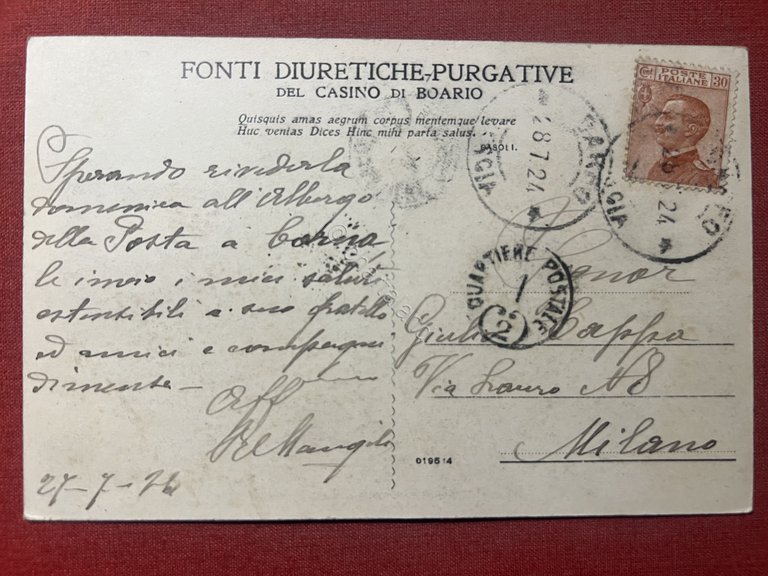 FONTI DIURETICHE-PURGATIVE
DEL CASINO DI BOARIO
Quisquis amas aegrum corpus mentemque levare
Huc venias Dices Hinc mihi parta salus.
PASOLI.
POSTE ITALIANE 30
28.7.24
24
QUARTIERE POSTALE
1
Sperando rivederla
domenica all'Albergo
della Posta a
le invio i miei saluti
estensibili a suo fratello
ed amici e
Aff
27-7-24
Signor
Giulio Cappa
Via Lauro N 8
Milano
019514